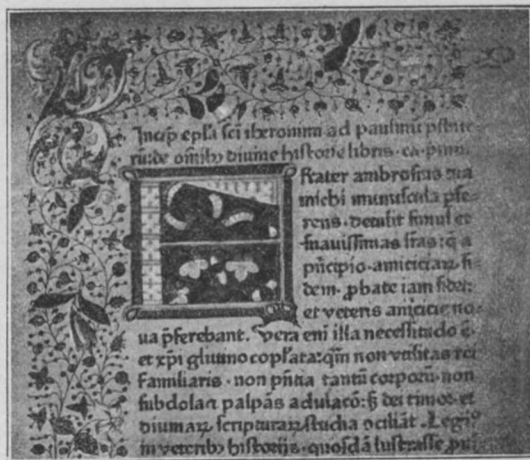 Incipit epl'a sci iheronimi ad paulinū p̄sbite-
rū: de omībꝫ diuine historie libris. ca. pmū.
Frater ambrosius tua
michi munuscula p̄fe-
rens. detulit simul et
suauissimas l̄ras: q̄ a
p̄ncipio amiciciaꝝ fi-
dem. ꝓbate iam fidei:
et veteris amicicie no-
ua p̄ferebant. Vera enī illa necessitudo ē.
et xp̄i glutino copl'ata: qm̄ non vtilitas rei
familiaris. non p̄ntia tantū corpoꝝ. non
subdola ⁊ palpās adulacō: sꝫ dei timor. et
diuinaꝝ scripturaꝝ studia ↄciliāt. Legiꝰ
in veteribꝫ historijs. quosdā lustrasse